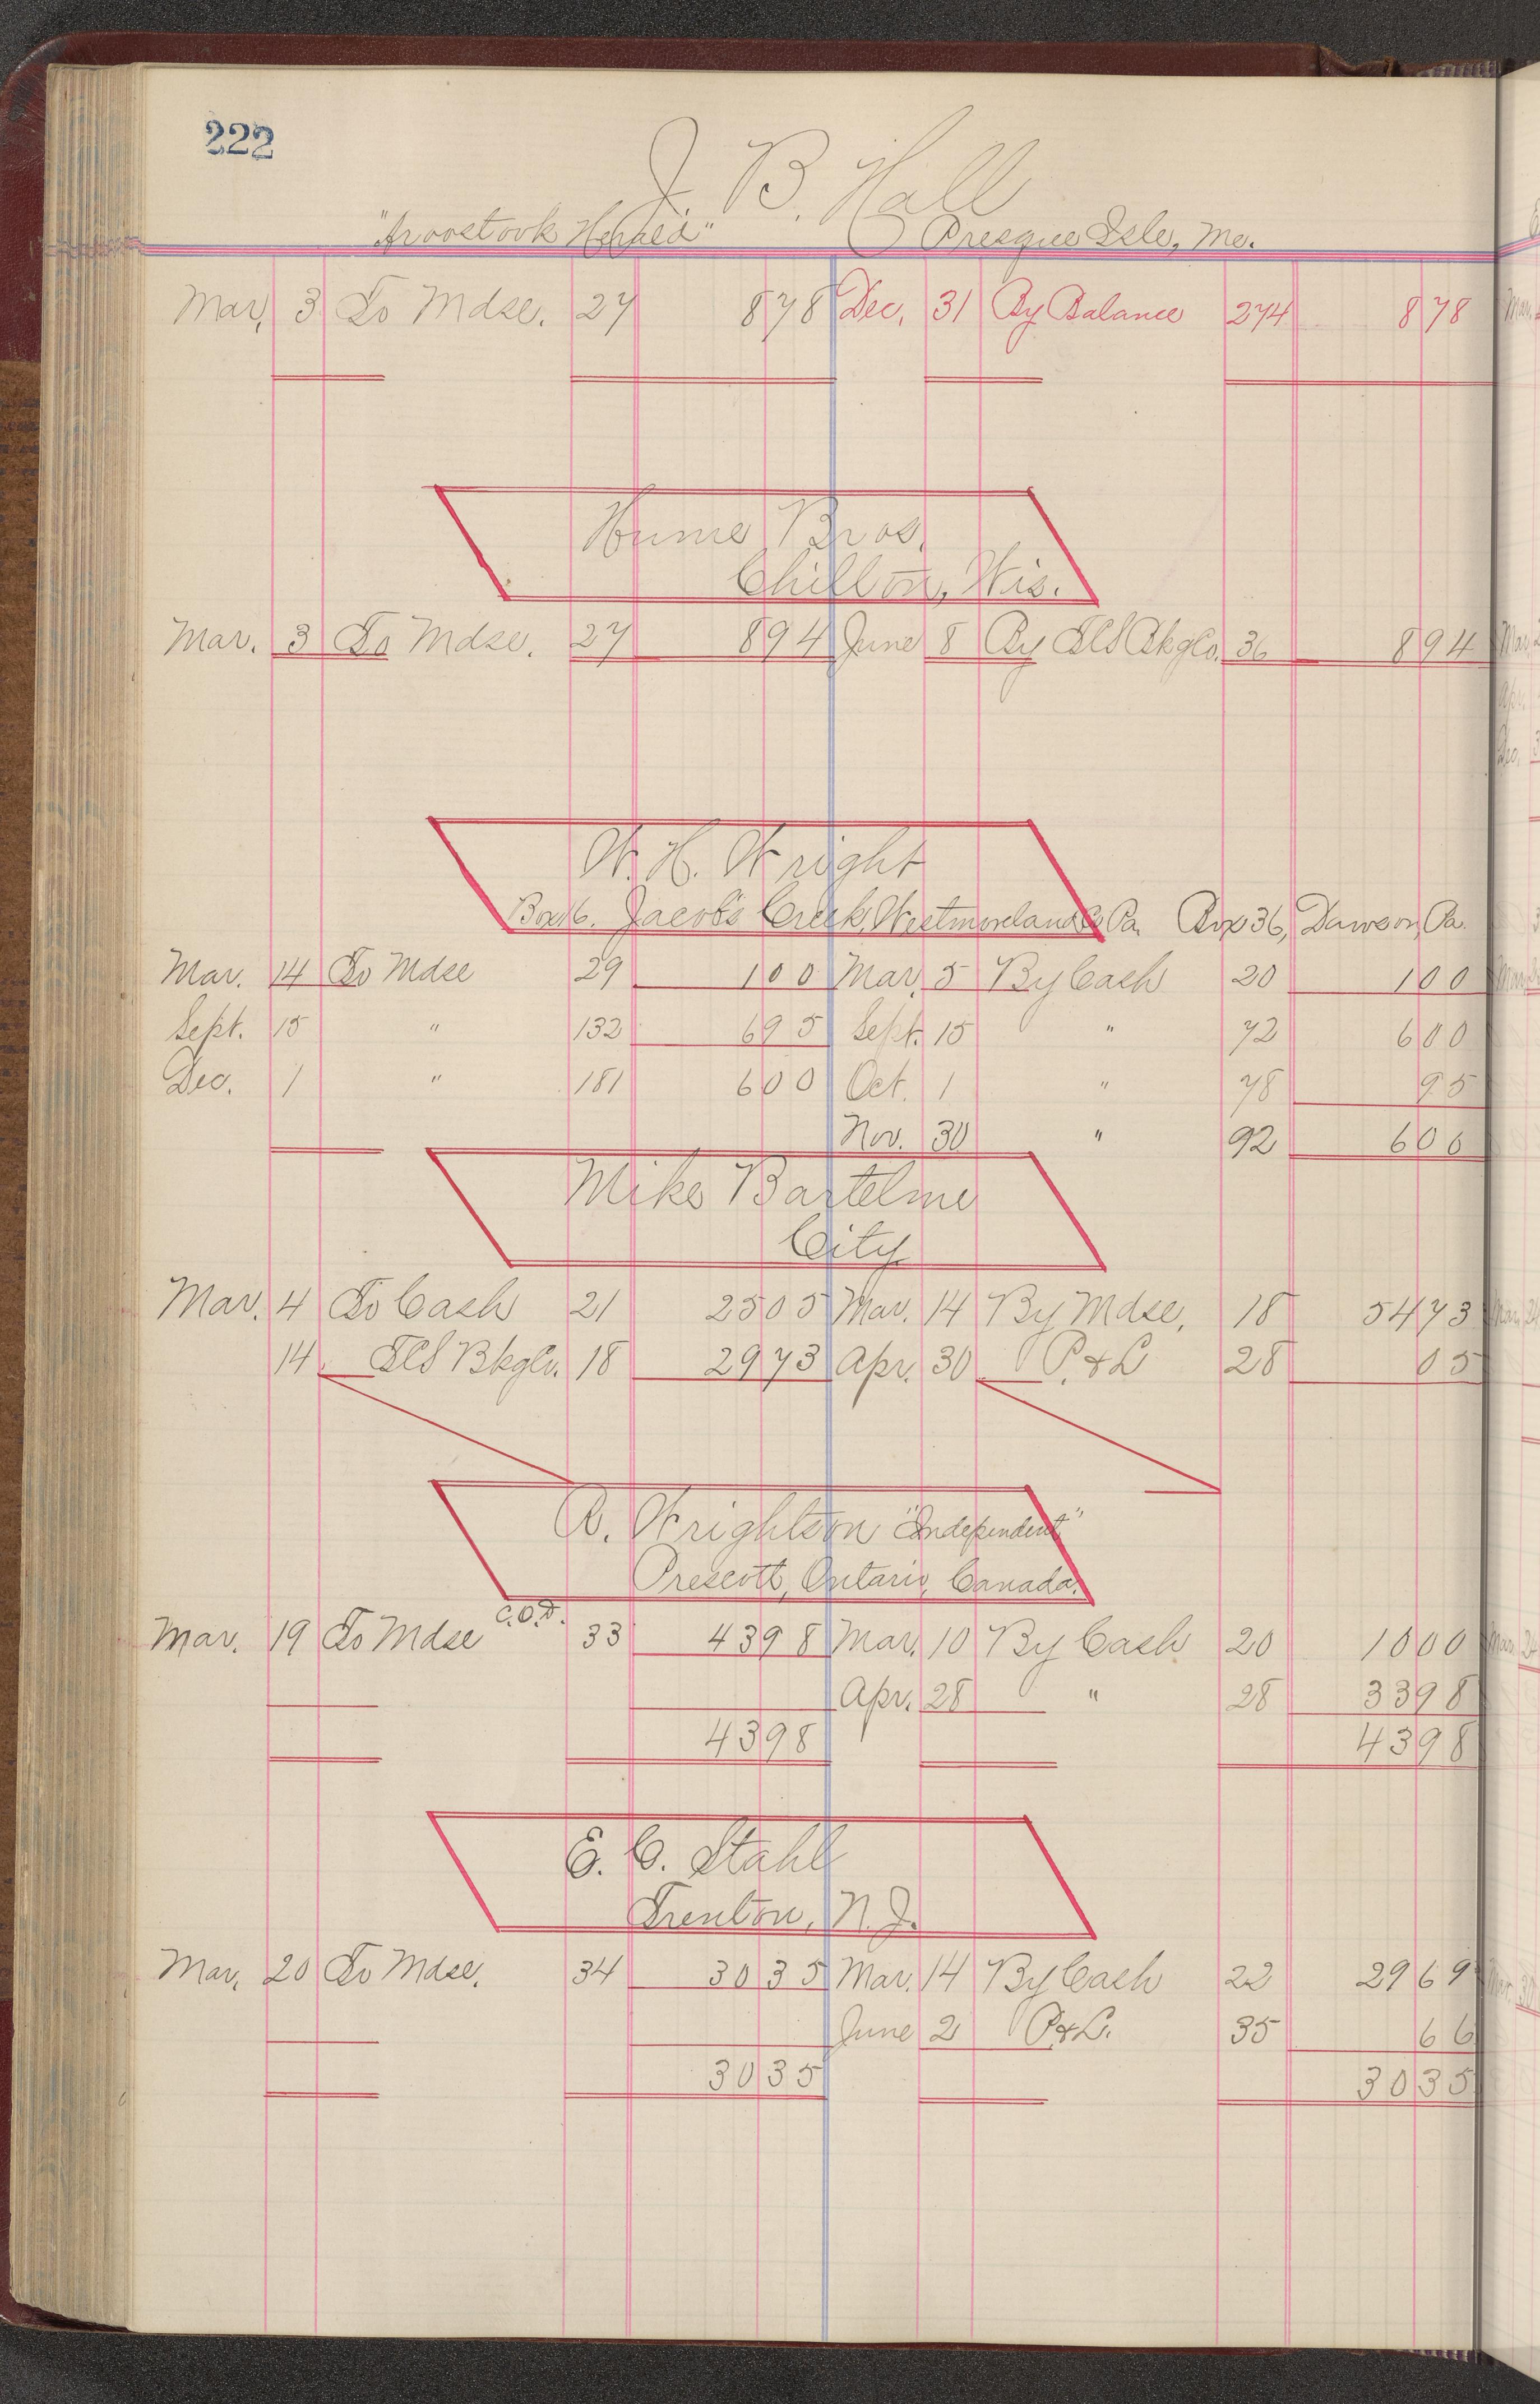 222
J. B. Hall
"Aroostook Herald" Presque Isle, Me.
Mar. 3 To Mdse. 27 8 78 Dec. 31 By Balance 274 8 78
Hume Bros.
Chilton, Wis.
Mar. 3 To Mdse. 27 8 94 June 8 By SCS Bkg Co. 36 8 94
W. H. Wright
Box 6. Jacob's Creek, Westmoreland Co Pa. Box 36, Dawson, Pa.
Mar. 14 To Mdse 29 1 00 Mar. 5 By Cash 20 1 00
Sept. 15 " 132 6 95 Sept. 15 " 72 6 00
Dec. 1 " 181 6 00 Oct. 1 " 78 95
Nov. 30 " 92 6 00
Mike Bartelme
City
Mar. 4 To Cash 21 25 05 Mar. 14 By Mdse. 18 54 73
14 SCS Bkg Co. 18 29 73 Apr. 30 P. & L 28 05
R. Wrightson "Independent"
Prescott, Ontario, Canada.
Mar. 19 To Mdse C.O.D. 33 43 98 Mar. 10 By Cash 20 10 00
Apr. 28 " 28 33 98
43 98 43 98
E. C. Stahl
Trenton, N. J.
Mar. 20 To Mdse. 34 30 35 Mar. 14 By Cash 22 29 69
June 2 P. & L. 35 66
30 35 30 35